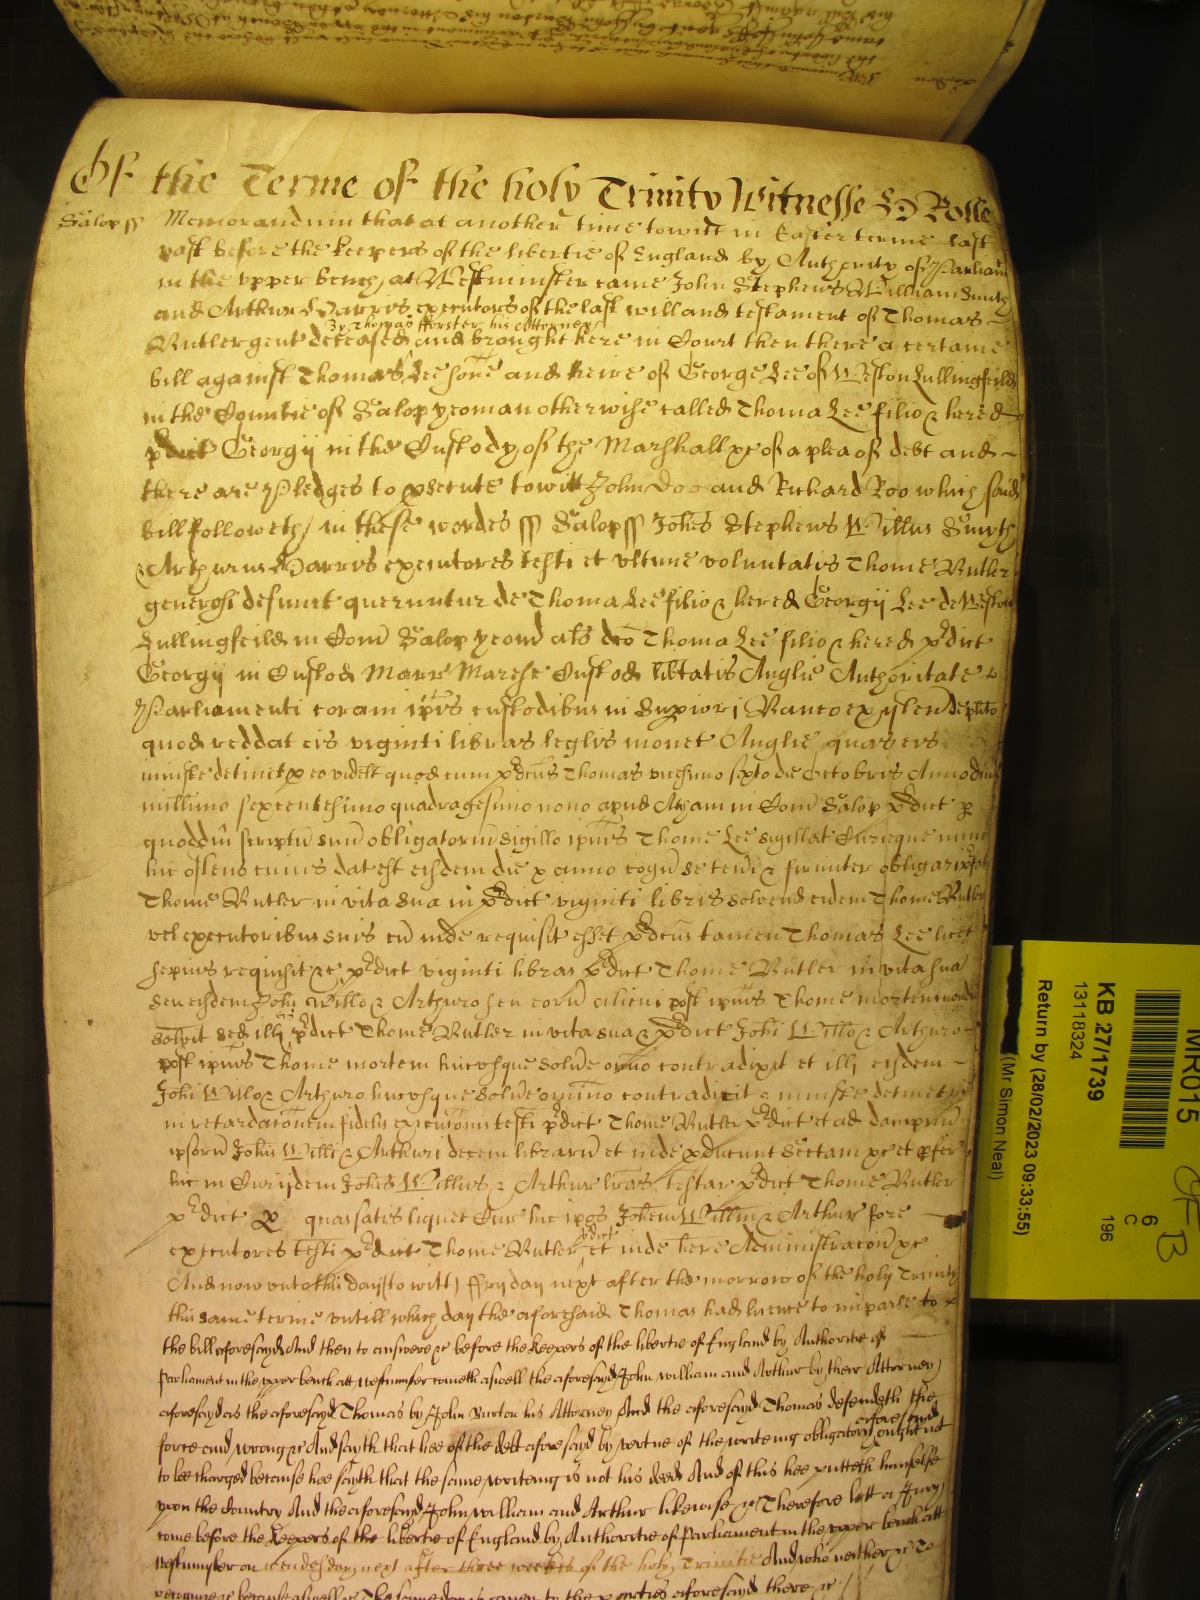 Of the Terme of the holy Trinity Witnesse H Rolle
Salop ss Memorandum that at another time towitt in Easter terme last
past before the keepers of the libertie of England by Authority of Parliam
in the vpper bench at Westminster came John Stephens William Smith
and Arthur Harris executors of the last will and testament of Thomas
by Thomas fforster his attorney
Butler gent deceased and brought here in Court then there a certaine
bill against Thomas Lee sonne and heire of George Lee of Weston Lullingfeild
in the Countie of Salop yeoman otherwise called Thoma Lee filio & hered
p'dict Georgij in the Custody of the Marshall &c of a plea of debt and
there are Pledges to p'secute towitt John Doo and Richard Roo which said
bill followeth in these wordes ss Salop ss Johes Stephens Willus Smyth
& Arthurus Harris executores testi et vltime voluntatis Thome Butler
generosi defunct queruntur de Thoma Lee filio & hered Georgij Lee de Weston
Lullingfeild in Com Salop yeom als dco Thoma Lee filio & hered p'dict
Georgij in Custod Marr Maresc Custod lib'tatis Anglie Authoritate
Parliamenti coram ip'is custodibus in Sup'iori Banco existen de pl'ito
quod reddat eis viginti libras leglis monet Anglie quas eis
iniuste detinet p eo videlt quod cum p'dcus Thomas vicesimo sexto die Octobris Anno dni
millimo sexcentesimo quadragesimo nono apud in Com Salop p'dict p
quoddm scriptu suu obligatoriu sigillo ip'ius Thome Lee sigillat Curieque nunc
hic ostens cuius dat est eisdem die & anno cogn se teneri & firmiter obligari p'fat
Thome Butler in vita sua in p'dict viginti libris solvend eidem Thome Butler
vel executoribus suis cu inde requisit esset p'dcus tamen Thomas Lee licet
sepius requisit &c p'dict viginti libras p'dict Thome Butler in vita sua
seu eisdem Johi Willo & Arthuro seu eoru alicui post ip'ius Thome mortem nondu
solvit sed ill ei p'dict Thome Butler in vita sua & p'dict Johi Willo & Arthuro
post ip'ius Thome mortem hucusque solu'e om'ino contradixit et ill eisdem
Johi Willo & Arthuro hucusque solu'e om'ino contradicit & iniuste detinet
in retardaconem fidelis execuconis testi p'dict Thome Butler p'dict et ad dampnu
ip'oru Johis Willi & Arthuri decem libraru et inde p'ducunt sectam &c et p'fer
hic in Cur ijdem Johes Willus & Arthur l'ras testar p'dict Thome Butler
p'dict p quas satis liquet Cur hic ip'os Johem Willm & Arthur fore
p'dict
executores testi p'dict Thome Butler et inde here Administracon &c
And now untothis day (to witt) ffryday next after the morrow of the holy Trinity
this same terme untill which day the aforesaid Thomas had licence to imparle to
the bill aforesayd And then to answere &c before the keepers of the libertie of England by Authoritie of
Parliament in the upper bench att westminster cometh aswell the aforesayd John william and Arthur by their Attorney
aforesayd as the aforesayd Thomas by John Burton his Attorney And the aforesayd Thomas defendeth the
aforesayd
force and wrong &c And sayth that hee of the debt aforesayd by vertue of the writeing obligatory ought not
to bee charged because hee sayth that the same writeing is not his deed And of this hee putteth himselfe
vpon the Country And the aforesayd John william and Arthur likewise &c Therefore lett a Jury
come before the Keepers of the libertie of England by Authoritie of Parliament in the upper bench att
westminster on wendesday next after three weekes of the holy Trinitie And who neither &c To
recognize &c because aswell &c The same day is given to the parties aforesayd there &c
MR015
KB 27/1739
13118324
Return by (28/02/2023 09:33:55)
(Mr Simon Neal)
6
C
196